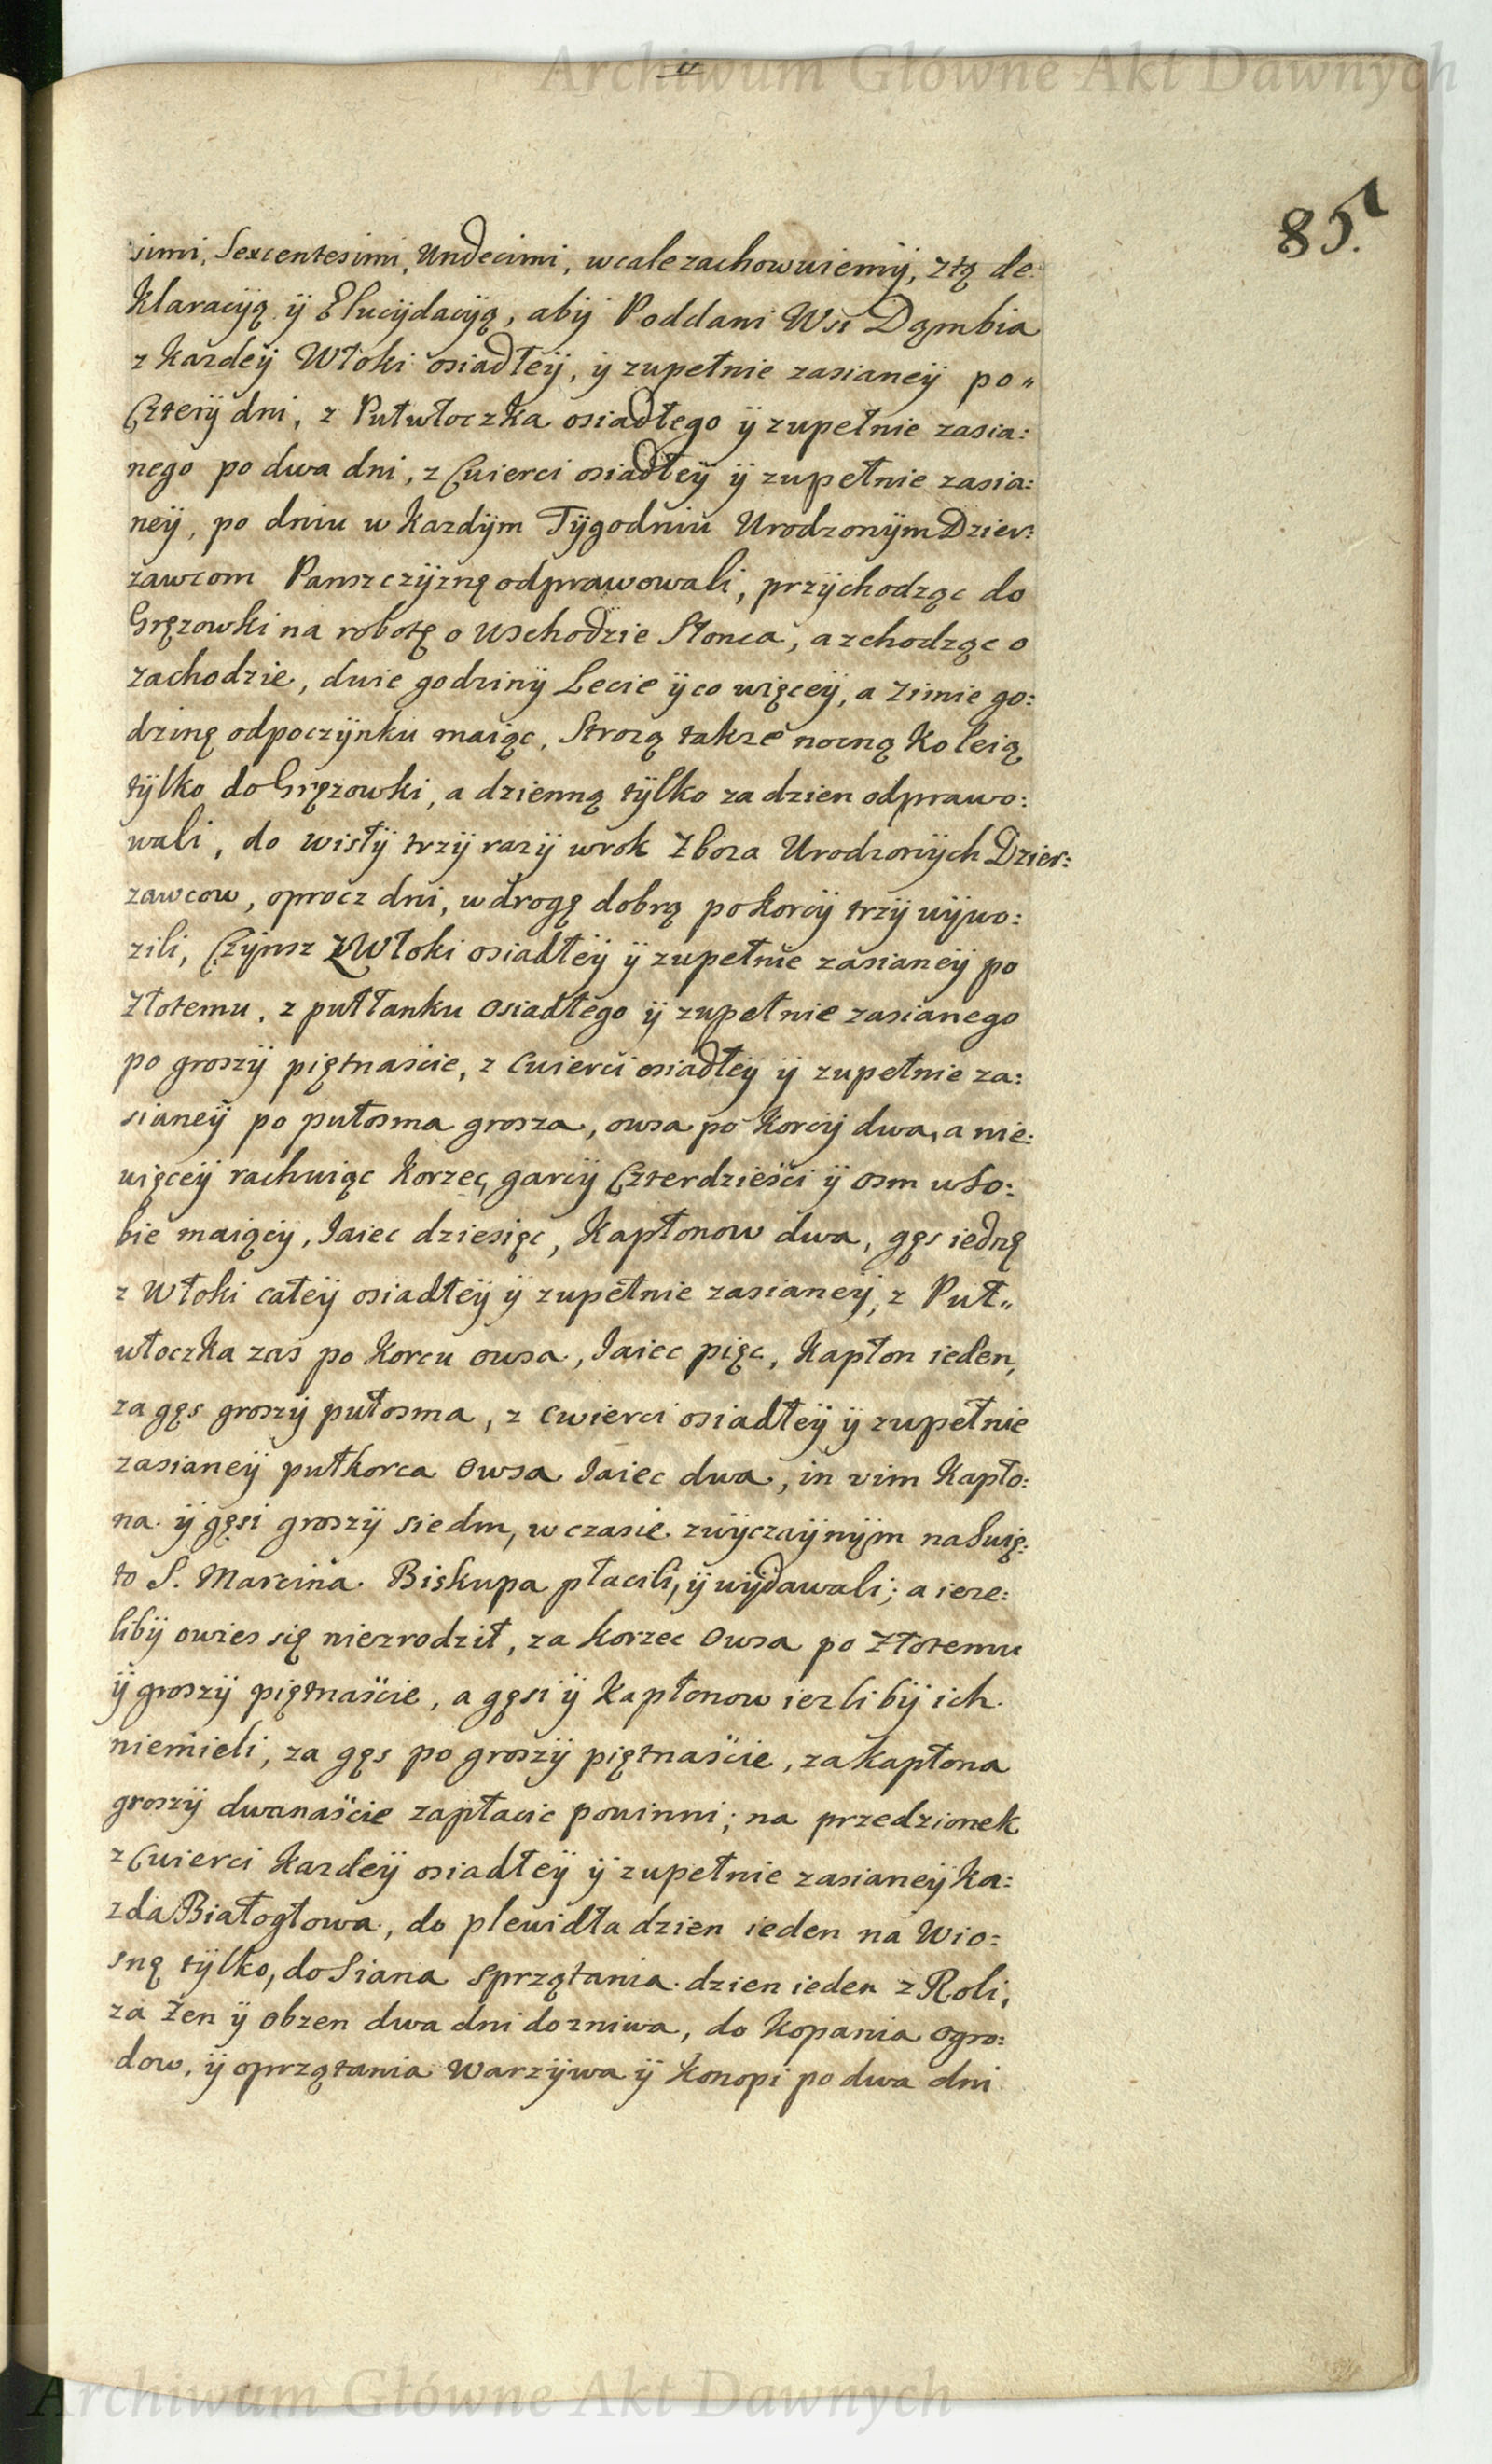 Archiwum Główne Akt Dawnych
85.
simi, Sexcentesimi, Undecimi, wcale zachowuiemÿ, z tą de:
Klaracÿą ÿ Elucÿdacÿą, abÿ Poddani Wsi Dąmbia
z Kazdeÿ Włoki osiadłeÿ, ÿ zupełnie zasianeÿ po„
Czterÿ dni, z Putwłoczka osiadłego ÿ zupełnie zasia:
nego po dwa dni, z Cwierci osiadłeÿ ÿ zupełnie zasia:
neÿ, po dniu w Kazdÿm Tÿgodniu Urodzonÿm Dzier:
zawcom Panszczÿznę odprawowali, przÿchodząc do
Gręzowki na robotę o Wschodzie Słonca, a zchodząc o
zachodzie, dwie godzinÿ Lecie ÿ co więceÿ, a Zimie go:
dzinę odpoczÿnku maiąc, Strozą takze nocną Koleią
tÿlko do Gręzowki, a dzienną tÿlko za dzien odprawo:
wali, do wisłÿ trzÿ razÿ w rok Zboza Urodzonÿch Dzier:
zawcow, oprocz dni, w drogę dobrą po korcÿ trzÿ wÿwo:
zili, Czÿnsz z Włoki osiadłeÿ ÿ zupełnie zasianeÿ po
Złotemu, z pułłanku osiadłego ÿ zupełnie zasianego
po groszÿ piętnaście, z Cwierci osiadłeÿ ÿ zupełnie za:
sianeÿ po pułosma grosza, owsa po Korcÿ dwa, a nie:
więceÿ rachuiąc Korzec, garcÿ Czterdzieści ÿ osm w So:
bie maiącÿ, Iaiec dziesięc, Kapłonow dwa, gęs iednę
z Włoki całeÿ osiadłeÿ ÿ zupełnie zasianeÿ, z Puł„
włoczka zas po Korcu owsa, Iaiec pięc, Kapłon ieden,
za gęs groszÿ pułosma, z cwierci osiadłeÿ ÿ zupełnie
zasianeÿ pułkorca Owsa Iaiec dwa, in vim Kapło:
na ÿ gęsi groszÿ siedm, w czasie zwÿczaÿnÿm na Swię:
to S. Marcina Biskupa płacili, ÿ wÿdawali; a ieze:
libÿ owies się niezrodził, za korzec Owsa po Złotemu
ÿ groszÿ piętnaście, a gęsi ÿ Kapłonow iezlibÿ ich
niemieli, za gęs po groszÿ piętnaście, za kapłona
groszÿ dwanaście zapłacic powinni; na przedzionek
z Cwierci Kazdeÿ osiadłeÿ ÿ zupełnie zasianeÿ Ka:
zda Białogłowa, do plewidła dzien ieden na Wio:
snę tÿlko, do Siana sprzątania dzien ieden z Roli,
za Zen ÿ Obzen dwa dni do zniwa, do Kopania Ogro:
dow, ÿ oprzątania Warzÿwa ÿ Konopi po dwa dni
Archiwum Główne Akt Dawnych